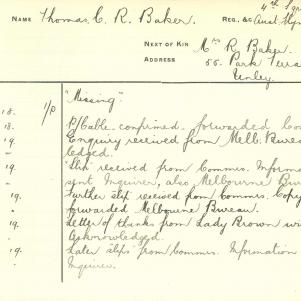 4th Sqn
NAME Thomas C. R. Baker. REG. &c. Aust. Flyin
NEXT OF KIN Mrs R. Baker.
ADDRESS 55. Park Terra
Unley.
18. 1/P "Missing".
18. P/Cable. confirmed. forwarded Lon
19. Enquiry received from Melb. Bureau
ledged.
19. "Slip received from Commrs. Informa
sent Inquirer, also Melbourne Bur
19. Further slip received from Commrs. Copy
forwarded Melbourne Bureau.
19. Letter of thanks from Lady Brown wi
Acknowledged.
19. Later slips from Commrs. Information
Inquirer.